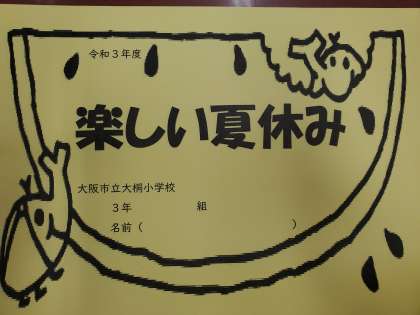 令和３年度
楽しい夏休み
大阪市立大桐小学校
３年　　　組
名前（　　　　　　　　　）